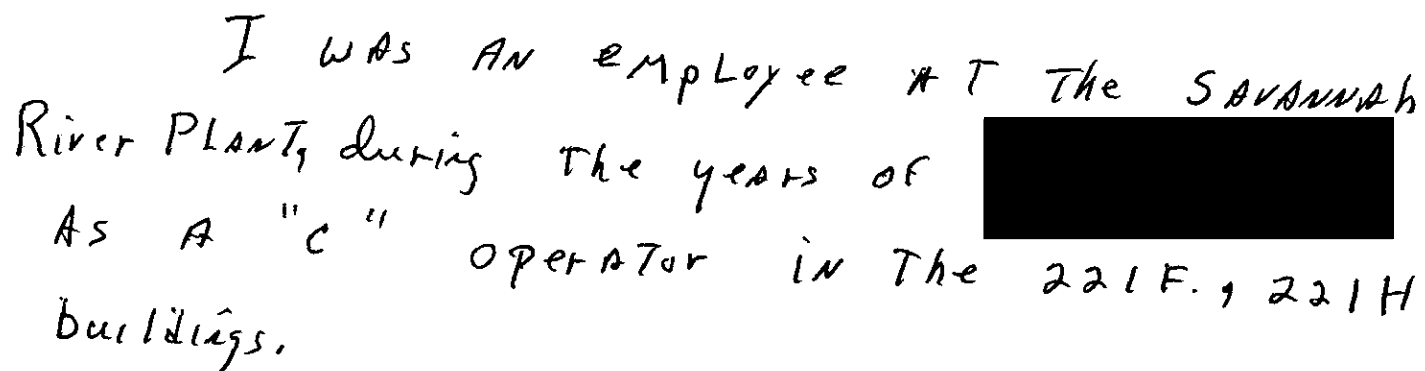 I was an employee at the Savannah
River Plant, during the years of
as a "c" operator in the 221F., 221H
buildings.